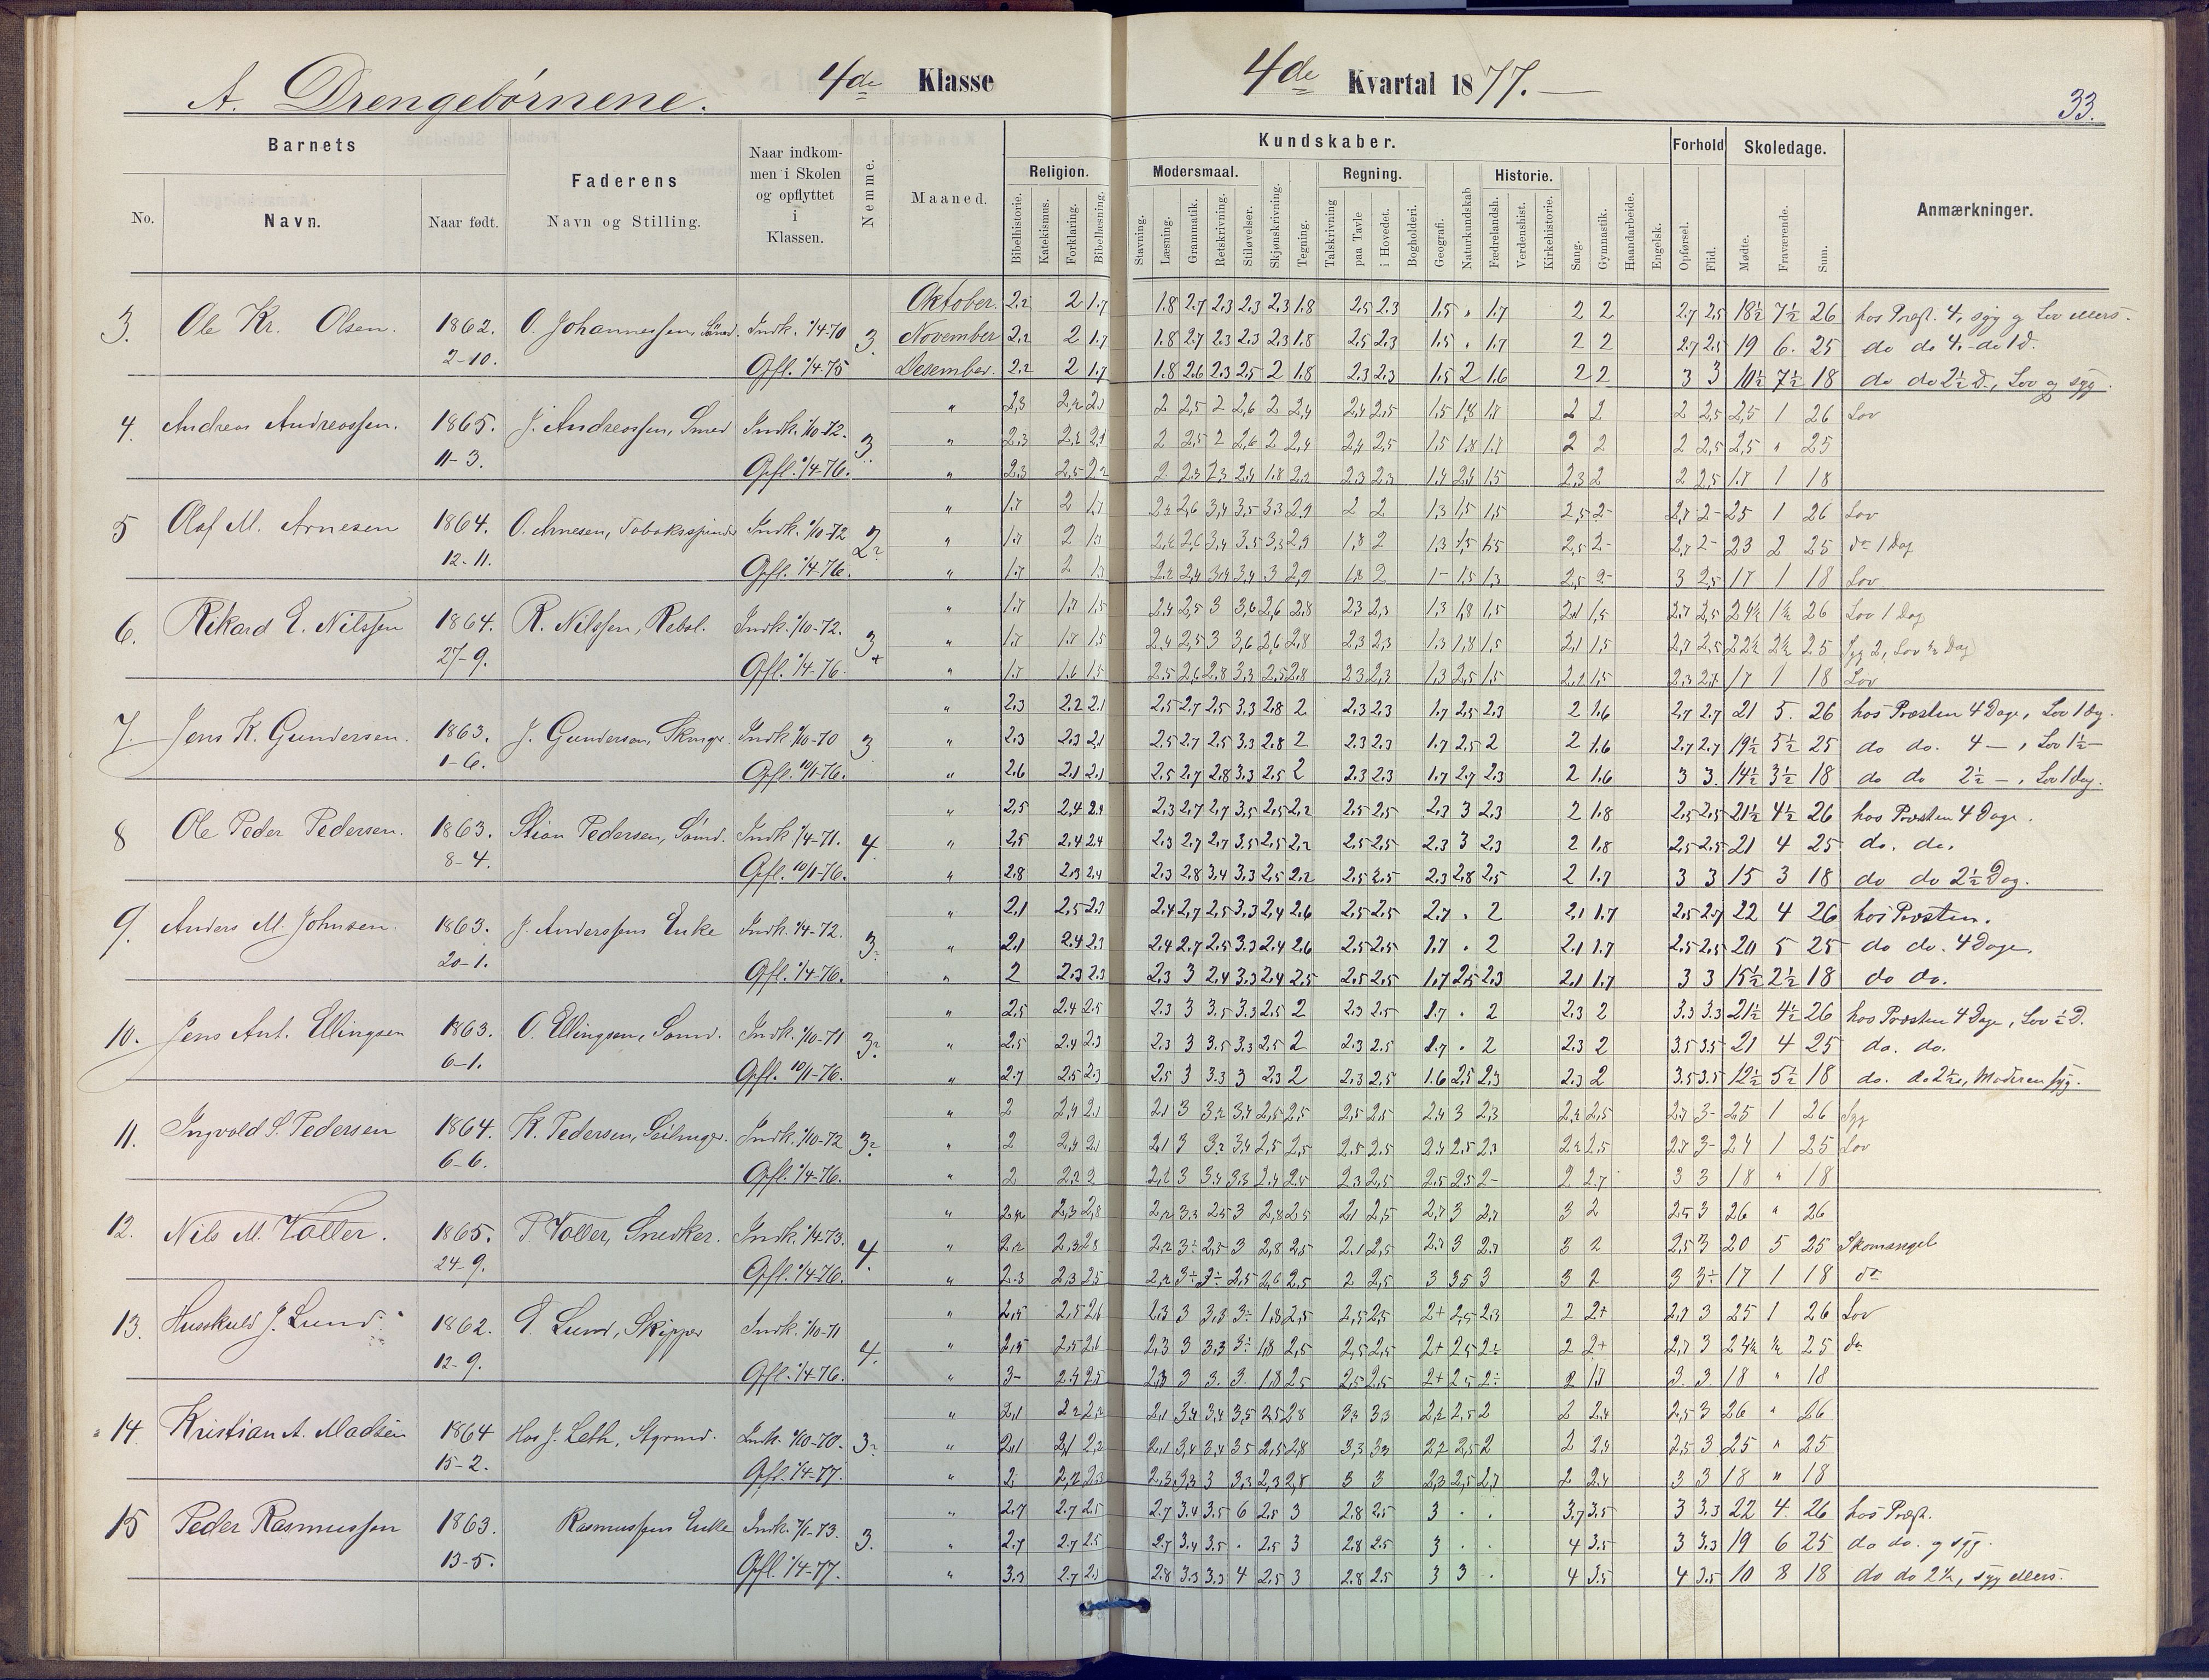 A. Drengebørnene. 4de Klasse
4de Kvartal 1877.
33.
Barnets
No.
Navn.
Naar født.
Faderens
Navn og Stilling.
Naar indkom-
men i Skolen
og opflyttet
i
Klassen.
Nemme.
Maaned.
Kundskaber.
Religion.
Bibelhistorie.
Katekismus.
Forklaring.
Bibellæsning.
Modersmaal.
Stavning.
Læsning.
Grammatik.
Retskrivning.
Stiløvelser.
Skjønskrivning.
Tegning.
Regning.
Talskrivning
paa Tavle
i Hovedet.
Bogholderi.
Geografi.
Naturkundskab
Historie.
Fædrelandsh.
Verdenshist.
Kirkehistorie.
Sang.
Gymnastik.
Haandarbeide.
Engelsk.
Forhold
Opførsel.
Flid.
Skoledage.
Mødte.
Fraværende.
Sum.
Anmærkninger.
3. Ole Kr. Olsen. 1862. 2-10. O. Johannessen, Indk. 1/4-70 Opfl. 1/4-75 3.
Oktober. 2.2 2 1.7 1.8 2.7 2.3 2.3 2.3 1.8 2.5 2.3 1.5 . 1.7 2 2 2.7 2.5 18½ 7½ 26 hos Præst. 4, syg og Lov
November 2.2 2 1.7 1.8 2.7 2.3 2.3 2.3 1.8 2.5 2.3 1.5 . 1.7 2 2 2.7 2.5 19 6. 25 do do 4, do 1 d.
Desember. 2.2 2 1.7 1.8 2.6 2.3 2.5 2 1.8 2.3 2.3 1.5 2 1.6 2 2 3 3 10½ 7½ 18 do do 2½ d., Lov og syg.
4. Andreas Andreassen. 1865. 11-3. J. Andreassen, Smed Indk. 1/10-72. Opfl. 1/4-76. 3
" 2,3 2 2,5 2 2,6 2 2,4 2,4 2,5 1,5 1,8 1,7 2 2 2 2,5 25 1 26 Lov
" 2,3 2 2,5 2 2,6 2 2,4 2,4 2,5 1,5 1,8 1,7 2 2 2 2,5 25 " 25
" 2,3 2 2 2,5 17 1 18
5 Olaf M. Arnesen 1864. 12-11. O. Arnesen, Tobaksspinder Indk. 1/10-72 Opfl. 1/4-76.
" 1.7 2 1,7 2 2 1,3 1,5 1,5 2,5 2- 2,7 2- 25 1 26 Lov
" 1.7 2 1,8 2 1,3 1,5 1,5 2,5 2- 2,7 2- 23 2 25 do 1 Dag
" 1.7 2 1,8 2 2,5 2- 3 2,5 17 1 18 Lov
6. Rikard E. Nilssen 1864. 27-9. R. Nilssen, Rebsl. Indk. 1/10-72. Opfl. 1/4-76. 3+
" 1.7 1.7 1.5 2,4 2,5 3 3,6 2,6 2,8 2,3 2,3 1,3 1,8 1,5 2,1 1,5 2,7 2,5 24½ 1½ 26 Lov 1 Dag
" 1.7 1.7 1.5 2,4 2,5 3 3,6 2,6 2,8 2,3 2,3 1,3 1,8 1,5 2,1 1,5 2,7 2,5 22½ 2½ 25 Syg 2, Lov ½ Dag
" 1.7 1.6 1.5 2,5 2,6 2,8 3,3 2,5 2,8 2,3 2,3 1,3 2,5 1,5 2,1 1,5 17 1 18 Lov
7. Jens K. Gundersen. 1863. 1-6. J. Gundersen, Indk 1/10-70 Opfl. 10/1-76. 3
" 2.3 2.2 2.1 2.5 2.7 2.5 3.3 2.8 2 2.3 2.3 1.7 2.5 2.3 2 1.6 2.7 2.7 21 5. 26 hos Præsten 4 Dage, Lov 1 dag.
" 2.3 2.3 2.1 2.5 2.7 2.5 3.3 2.8 2 2.3 2.3 1.7 2.5 2 2 1.6 2.7 2.7 19½ 5½ 25 do do. 4 —, Lov 1½ —
" 2.6 2.1 2.1 2.5 2.7 2.8 3.3 2.5 2 2.3 2.3 1.7 2.7 2.3 2 1.6 3 3. 14½ 3½ 18 do do 2½ —, Lov 1 dag.
8 Ole Peder Pedersen. 1863. 8-4. Stian Pedersen, Sømd. Indk. 1/4-71. Opfl. 10/1-76. 4.
" 2.5 2.4 2.4 2.3 2.7 2.7 3.5 2.5 2.2 2.5 2.5 2.3 3 2.3 2 1.8 2.5 2.5 21½ 4½ 26 hos Præsten 4 Dage.
" 2.5 2.4 2.4 2.3 2.7 2.7 3.5 2.5 2.2 2.5 2.5 2.3 3 2.3 2 1.8 2.5 2.5 21 4 25 do. do.
" 2.8 2.3 2.4 2.3 2.8 3.4 3.3 2.5 2.2 2.5 2.5 2.3 2.8 2.5 2 1.7 3 3 15 3 18 do do 2½ Dag.
9. Anders M. Johnsen. 1863. 20-1. J. Anderssens Enke Indk. 1/4-72. Opfl. 1/4-76.
" 2.1 2.5 2.3 2.4 2.7 2.5 3.3 2.4 2.6 2.5 2.5 2.7 . 2 2.1 1.7 2.5 2.7 22 4 26 hos Præsten.
" 2.1 2.4 2.3 2.4 2.7 2.5 3.3 2.4 2.6 2.5 2.5 1.7 . 2 2.1 1.7 2.5 2.5 20 5 25 do do. 4 Dage.
" 2 2.3 2.3 2.3 3 2.4 3.3 2.4 2.5 2.5 2.5 1.7 2.5 2.3 2.1 1.7 3 3 15½ 2½ 18 do do.
10. Jens Ant. Ellingsen 1863. 6-1. O. Ellingsen, Sømd. Indk. 1/10-71 Opfl. 10/1-76.
" 2.5 2.4 2.5 2.3 3 3.5 3.3 2.5 2 2.3 2.5 1.7 . 2 2.3 2 3.3 3.3 21½ 4½ 26 hos Præsten 4 Dage, Lov ½ D.
" 2.5 2.4 2.3 2.3 3 3.5 3.3 2.5 2 2.3 2.5 1.7 . 2 2.3 2 3.5 3.5 21 4 25 do. do.
" 2.7 2.5 2.3 2.5 3 3.3 3 2.3 2 2.3 2.5 1.6 2.5 2.3 2.3 2 3.5 3.5 12½ 5½ 18 do. do 2½, Moderen syg.
11. Ingvald S. Pedersen 1864. 6-6. K. Pedersen, Indk. 1/10-72 Opfl. 1/4-76.
" 2 2,4 2,1 2,1 3 3,2 3,4 2,5 2,5 2,5 2,5 2,4 3 2,3 2,2 2,5 2,7 3- 25 1 26 Syg
" 2 2,4 2,1 2,1 3 3,2 3,4 2,5 2,5 2,5 2,5 2,4 2,5 2,3 2,2 2,5 2,7 3- 24 1 25 Lov
" 2 2,2 2 2,3 2,5 2,5 2,5 2- 2 2,7 3 3 18 " 18
12. Nils M. Voller. 1865. 24-9. P. Voller, Snedker. Indk. 1/4-73. Opfl. 1/4-76. 4.
" 2,2 2,3 2,8 2,5 3 2,8 2,5 2,1 2,5 2,7 3 2,7 3 2 2,5 3 26 " 26
" 2,2 2,3 2,8 2,5 3 2,8 2,5 2,1 2,5 2,7 3 2,7 3 2 2,5 3 20 5 25 Skomangel
" 2,3 2,3 2,5 2,5 2,6 2,5 2 2,5 3 3,5 3 3 2 3 3÷ 17 1 18 do
13. J. Lund. 1862. 12-9. Lund, Skipper Indk. 1/10-71 Opfl. 1/4-76. 4.
" 2,5 2,5 2,6 2,3 3 3,3 3÷ 1,8 2,5 2,5 2,5 2+ 2,5 2,3 2 2+ 2,7 3 25 1 26 Lov
" 2,5 2,5 2,6 2,3 3 3,3 3÷ 1,8 2,5 2,5 2,5 2+ 2,5 2÷ 2 2+ 2,7 3 24½ ½ 25 do
" 3- 2,3 3 3. 3. 1,8 2,5 2,5 2,5 2+ 2,5 2÷ 3. 3. 18 " 18
14. Kristian A. Madsen 1864 15-2. Hos J. Leth, Styrmd. Indk. 1/10-70. Opfl. 1/4-77.
" 2,1 2,2 2,2 2,1 3,4 3,4 3,5 2,5 2,8 3,3 3,3 2,2 2,5 2 2 2,4 2,5 3 26 " 26
" 2,1 2,1 2,2 2,1 3,4 3,4 3,5 2,5 2,8 3,3 3,3 2,2 2,5 2 2 2,4 2,5 3 25 " 25
" 2 2,2 2,3 2,3 3,3 3 3,3 2,3 2,8 3 3 2,3 2,5 2,7 2 2,4 3 3 18 " 18
15 Peder Rasmussen 1863. 13-5. Rasmussens Enke Opfl. 1/4-77. 3.
" 2.7 2.7 2.5 2.7 3.4 3.5 6 2.5 3 2.8 2.5 3 . . 3.7 3.5 3 3.3 22 4. 26 hos Præst.
" 2.7 2.7 2.5 2.7 3.4 3.5 . 2.5 3 2.8 2.5 3 . . 4 3.5 3 3.3 19 6 25 do do. og syg.
" 3.3 2.7 2.8 3.3 3.3 4 2.5 3 2.8 2.5 3 3 . 4 3.5 4 3.5 10 8 18 do do 2½, syg